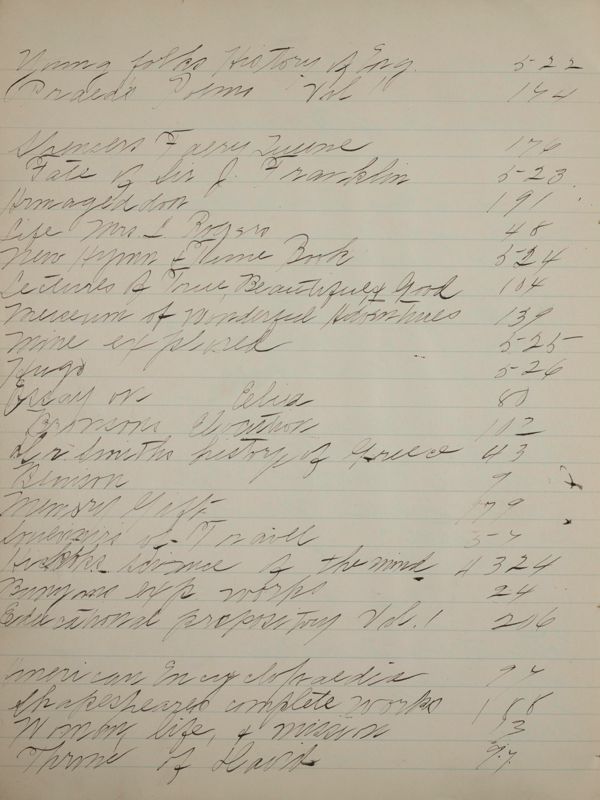 Young folks History of Eng. 522
Poems Vol 1 174
Spencers Faery Queene 176
Fate of Sir J. Franklin 523
Armageddon 191
Life Mrs L Rogers 48
New Hymn & Tune Book 524
Lectures of True, Beautiful & Good 104
Museum of Wonderful Adventures 139
Mine explored 525
Hugo 526
Essay on 80
Bronsons Elocution 102
Smiths history of Greece 43
Benson 9
Memory Gift 179
Souvenirs of Travel 57
science of the mind 4324
Bunyans exp works 24
Educational repository Vol. 1 206
American Encyclopaedia 97
Shakespeares complete works 188
Woman life, & mission 93
Throne of David 97